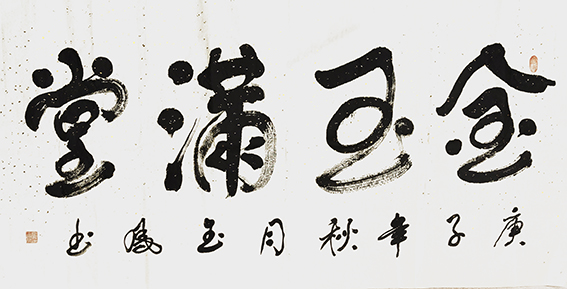 金玉满堂
庚子年秋月玉凤书